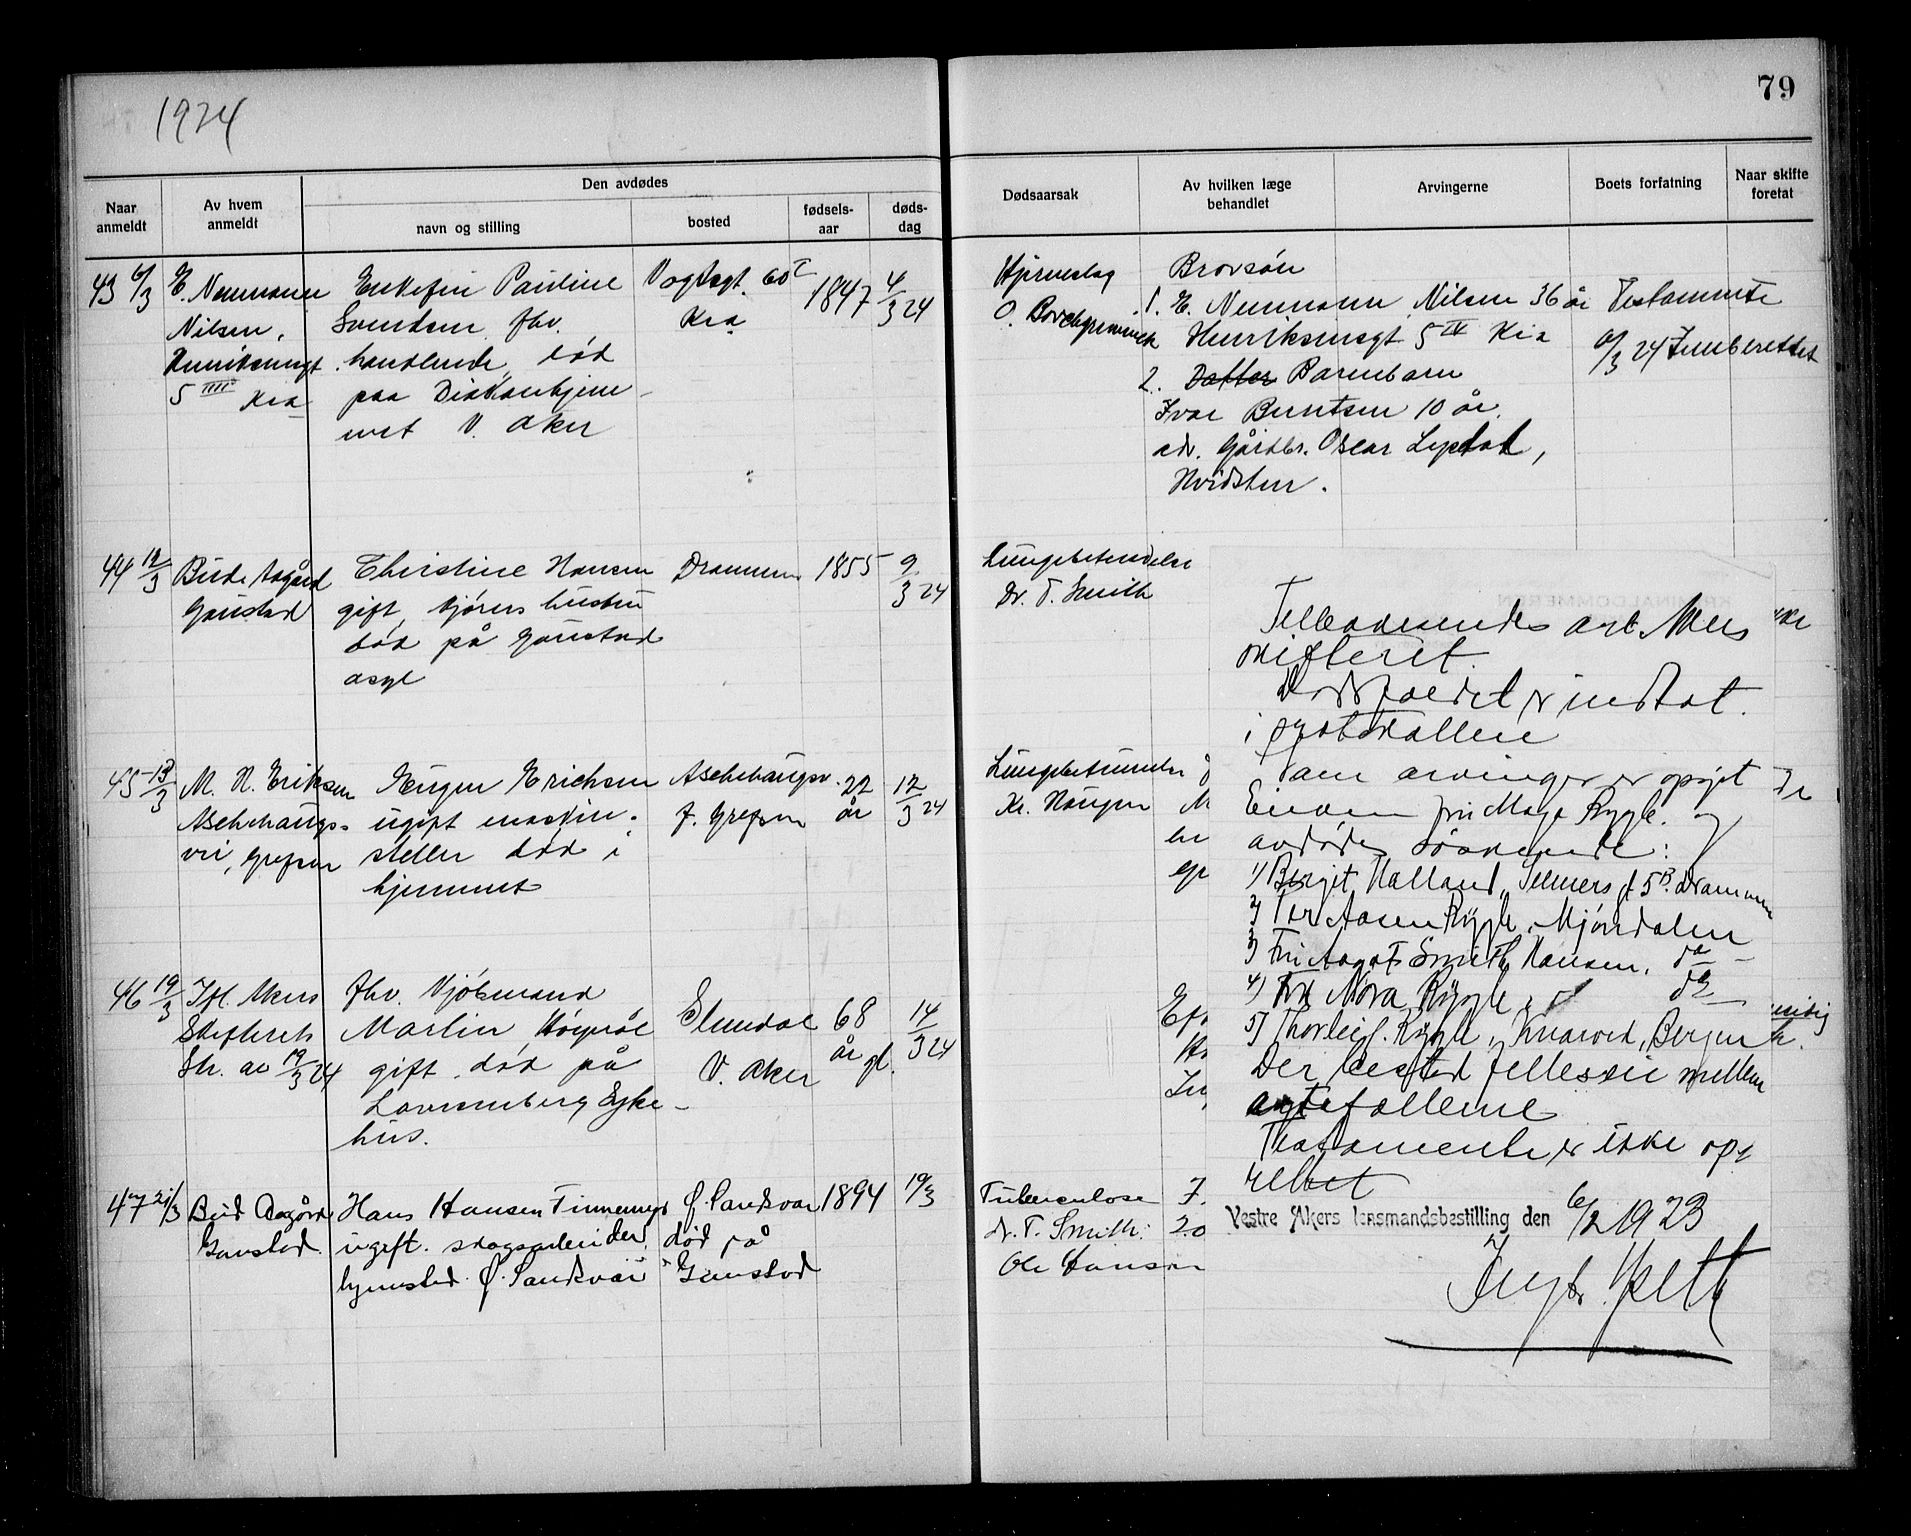 1924
79
Naar anmeldt
Av hvem anmeldt
Den avdødes
navn og stilling
bosted
fødsels-aar
døds-dag
Dødsaarsak
Av hvilken læge behandlet
Arvingerne
Boets forfatning
Naar skifte foretat
43 6/3
E. Neumann
Nilsen,
Henriksensgt
5 IIII Kra
Enkefru Pauline
Svendsen fhv.
handlende, død
paa Diakonhjem-
met V. Aker
Vogtsgt. 60 I
Kra
1847
4/3 24
Hjerneslag
O.
Brorsön
1. E. Neumann Nilsen 36 år
Henriksensgt 5 IV Kra
2. Datter Barnebarn
Ivar Berntsen 10 år.
adr. Gårdbr. Oscar
Hvidsten.
Testamente
6/3 24 Innberettet
44 12/3
Bud Aagård
Gaustad
Christine Hansen
gift, kjörers hustru
död på Gaustad
asyl
Drammen
1855
9/3 24
Lungebetendelse
Dr. T. Smith
45 13/3
M. H. Eriksen
Aschehougs-
vei, Grefsen
Eugen Erichsen
ugift maskin-
steller död i
hjemmet
Aschehougsv.
f. Grefsen
22
år
12/3 24
Lungebetendelse
Kr. Haugen
M
en
46 19/3
Ifl. Akers
Skifterets
Skr. av 19/3 24
fhv. Kjöbmand
Martin
gift, död på
Lovisenberg Syke-
hus.
V. Aker
68
år gl.
14/3 24
47 21/3
Bud Aagård
Gaustad.
Hans Hansen
ugift. skogsarbeider,
hjemsted Ø. Sandsvær
Ø. Sandsvær
död på
Gaustad
1894
19/3
Tuberkulose
dr. T. Smith.
Ole Hansen
7.
20
Tilbakesendes Akers
skifteret.
Dødsfaldet er indtat
i protokollen
Som arvinger er opgit
fru
avdødes söskende:
1) Berget Halland, Selmers gt 5B. Drammen
2) Mjöndalen
3) Fru Aagot Smith Hansen. do
4) Frk Nora Rygh, do
5) Thorleif Rygh, Bergen
Der bestod fælleseie mellem
ægtefællerne
Testamente er ikke op-
rettet
Vestre Akers lensmandsbestilling den 6/2 1923